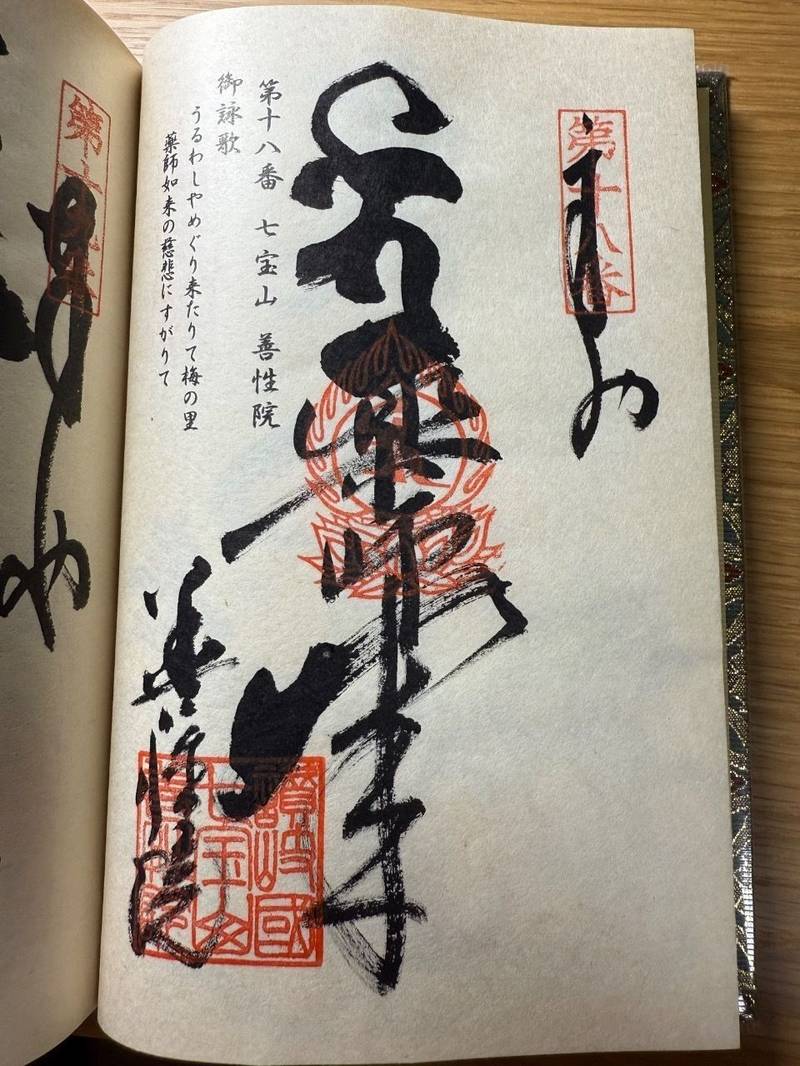 第十八番
奉納
薬師如来
第十八番 七宝山 善性院
御詠歌
うるわしやめぐり来たりて梅の里
薬師如来の慈悲にすがりて
善性院
讃岐國
七宝山